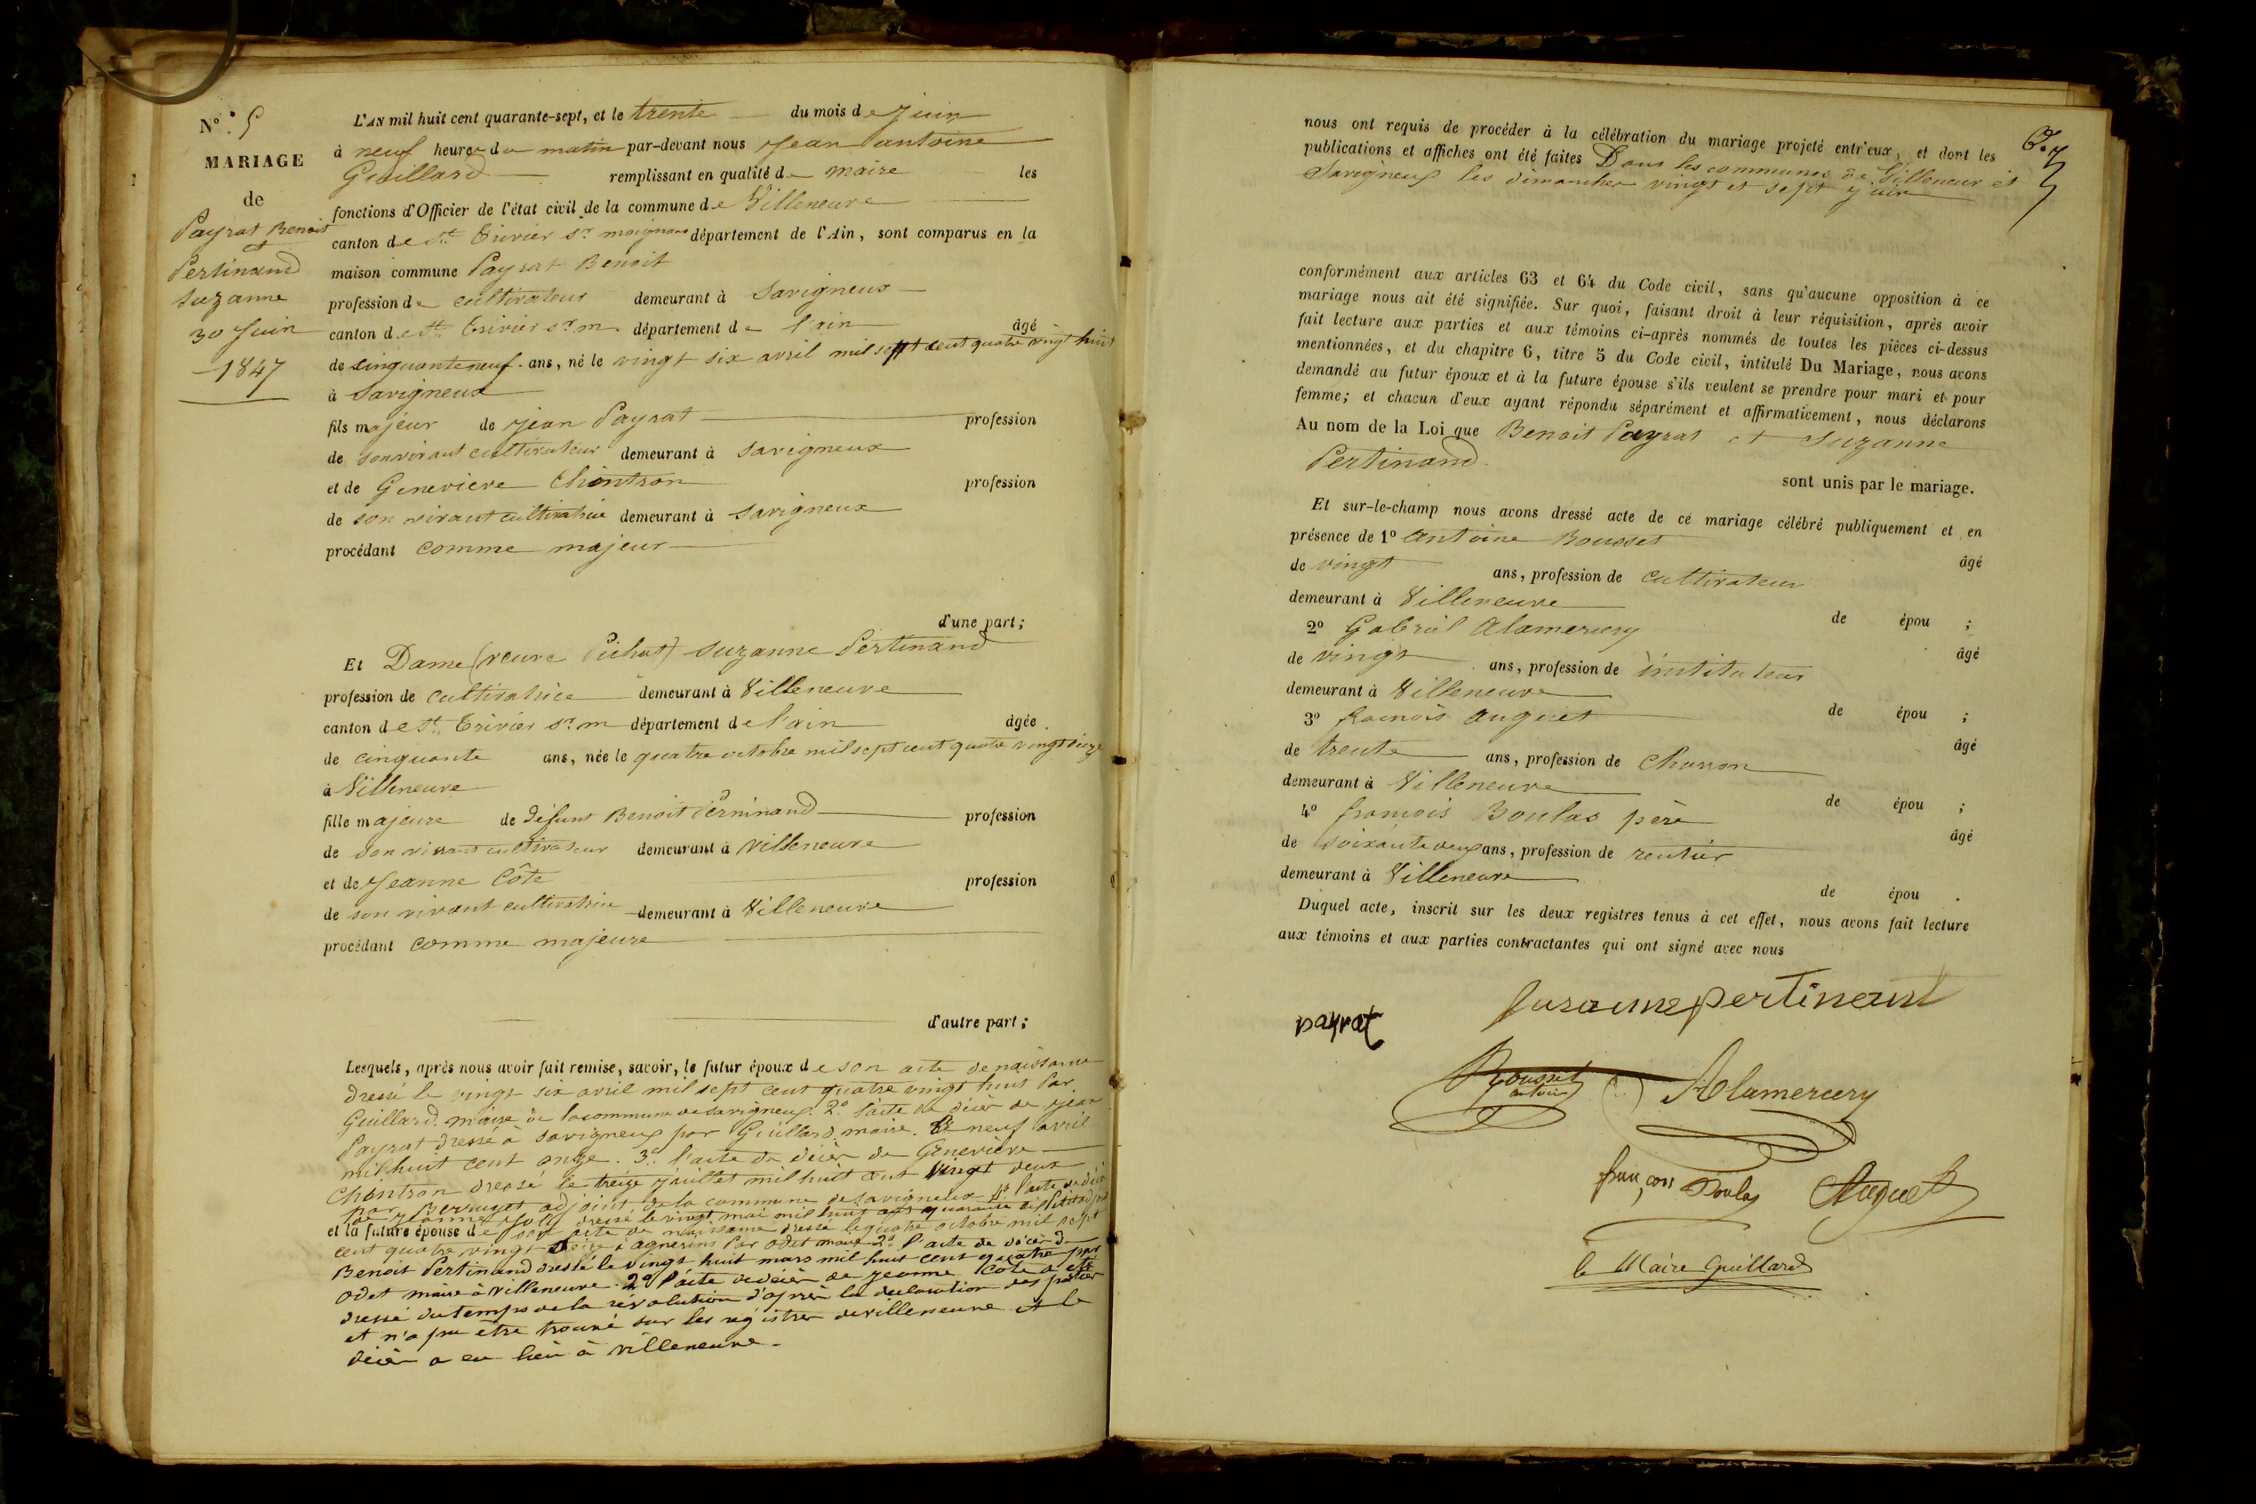 N°. 5
MARIAGE
de
Payrat Benoit
et
Pertinand
Suzanne
30 Juin
1847
L'AN mil huit cent quarante-sept, et le trente du mois de Juin
à neuf heures du matin par-devant nous Jean antoine
Guillard remplissant en qualité de maire les
fonctions d'Officier de l'état civil de la commune de Villeneuve
canton de St. Trivier sr. moignans département de l'Ain, sont comparus en la
maison commune Payrat Benoit
profession de cultivateur demeurant à Savigneux
canton de St. Trivier sr. m. département de l'ain âgé
de cinquante neuf ans, né le vingt six avril mil sept cent quatre vingt huit
à Savigneux
fils majeur de Jean Payrat profession
de son vivant cultivateur demeurant à Savigneux
et de Genevieve Chintron profession
de son vivant cultivatrice demeurant à Savigneux
procédant comme majeur
d'une part;
Et Dame (veuve Pichat) Suzanne Pertinand
profession de cultivatrice demeurant à Villeneuve
canton de St. Trivier sr. m département de l'ain âgée
de cinquante ans, née le quatre octobre mil sept cent quatre vingt
à Villeneuve
fille majeure de défunt Benoit Perninand profession
de son vivant cultivateur demeurant à Villeneuve
et de Jeanne Côte profession
de son vivant cultivatrice demeurant à Villeneuve
procédant comme majeure
d'autre part;
Lesquels, après nous avoir fait remise, savoir, le futur époux de son acte de naissance
dressé le vingt six avril mil sept cent quatre vingt huit par
Guillard maire de la commune de Savigneux. 2° l'acte de décès de Jean
Payrat dressé à Savigneux par Guillard maire. le neuf avril
mil huit cent onze. 3° l'acte de décès de Genevieve
Chintron dressé le treize juillet mil huit cent vingt deux
par adjoint de la commune de Savigneux 4° l'acte de décès
de dressé le vingt mai mil huit cent quarante
et la future épouse de son acte de naissance dressé le quatre octobre mil sept
cent quatre vingt à agnereins par Odet maire 2° l'acte de décès de
Benoit Pertinand dressé le vingt huit mars mil huit cent quatre par
Odet maire à Villeneuve. 2° l'acte de décès de Jeanne Côte a été
dressé du temps de la révolution d'après la déclaration des parties
et n'a pu être trouvé sur les régistres de villeneuve et le
décès a eu lieu à villeneuve.
nous ont requis de procéder à la célébration du mariage projeté entr'eux, et dont les
publications et affiches ont été faites Dans les communes de Villeneuve et
Savigneux les dimanches vingt et sept juin
conformément aux articles 63 et 64 du Code civil, sans qu'aucune opposition à ce
mariage nous ait été signifiée. Sur quoi, faisant droit à leur réquisition, après avoir
fait lecture aux parties et aux témoins ci-après nommés de toutes les pièces ci-dessus
mentionnées, et du chapitre 6, titre 5 du Code civil, intitulé Du Mariage, nous avons
demandé au futur époux et à la future épouse s'ils veulent se prendre pour mari et pour
femme; et chacun d'eux ayant répondu séparément et affirmativement, nous déclarons
Au nom de la Loi que Benoit Payrat et Suzanne
Pertinand
sont unis par le mariage.
Et sur-le-champ nous avons dressé acte de ce mariage célébré publiquement et en
présence de 1° antoine Bousset
âgé
de vingt ans, profession de cultivateur
demeurant à Villeneuve
de épou ;
2° Gabriel Alamercery
âgé
de vingt ans, profession de instituteur
demeurant à Villeneuve
de épou ;
3° francois auguet
âgé
de trente ans, profession de Charron
demeurant à Villeneuve
de épou ;
4° francois Boulas père
âgé
de soixante deux ans, profession de rentier
demeurant à Villeneuve
de épou .
Duquel acte, inscrit sur les deux registres tenus à cet effet, nous avons fait lecture
aux témoins et aux parties contractantes qui ont signé avec nous
payrat
Susanne pertinand
Bousset
antoine
Alamercery
françois Boulas
Auguet
le Maire Guillard